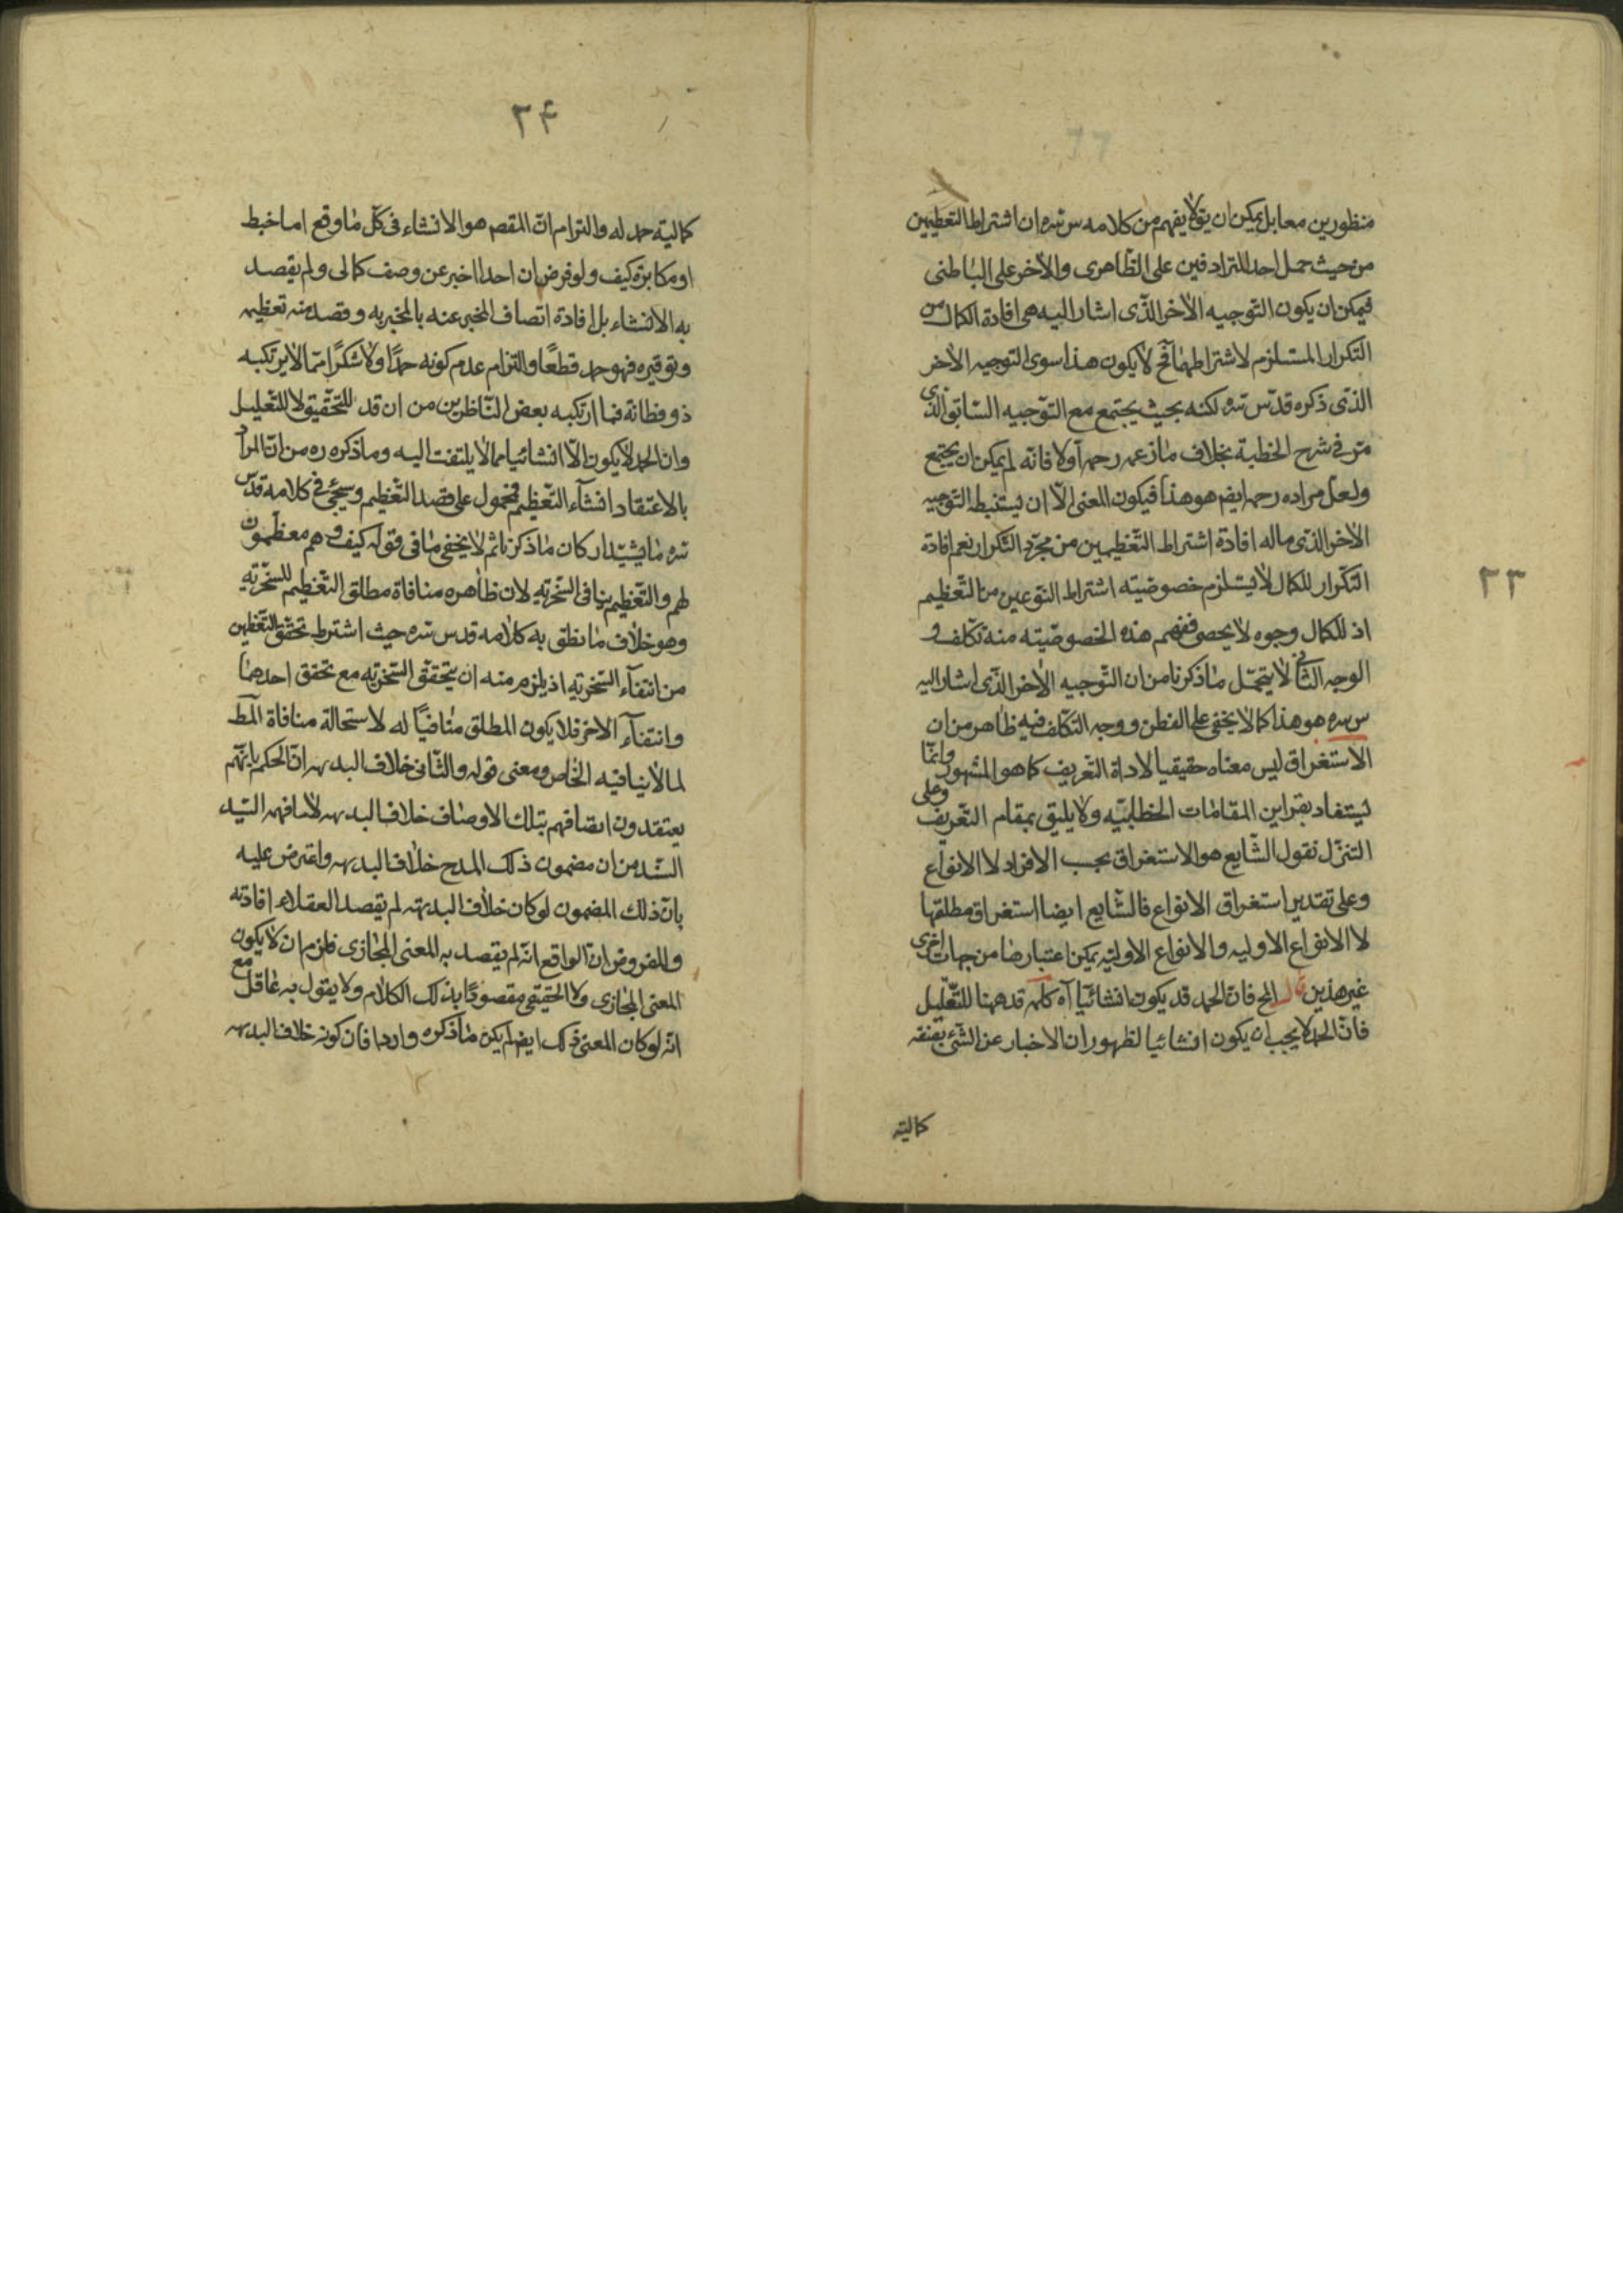 منظورين معا بل يمكن ان يق لا يفهم من كلامه س سره ان اشتراط التعظيمين
من حيث حمل احد المترادفين على الظاهرى والاخر على الباطنى
فيمكن ان يكون التوجيه الاخر الذى اشار اليه هى افادة الكمال من
التكرار المستلزم لاشتراطهما فح لا يكون هذا سوى التوجيه الاخر
الذى ذكره قدس سره لكنه بحيث يجتمع مع التوجيه السابق الذى
مر فى شرح الخطبة بخلاف ما زعمه رحمه اولا فانه لم يمكن ان يجتمع
ولعل مراده رحمه ايضا هو هذا فيكون المعنى الا ان يستنبط التوجيه
الاخر الذى ماله افادة اشتراط التعظيمين من مجرد التكرار نعم افادة
التكرار للكمال لا يستلزم خصوصيته اشتراط النوعين من التعظيم
اذ للكمال وجوه لا يحصى ففهم هذه الخصوصيته منه تكلف و
الوجه الثانى لا يتحمل ما ذكرنا من ان التوجيه الاخر الذى اشار اليه
س سره هو هذا كما لا يخفى على الفطن ووجه التكلف فيه ظاهر من ان
الاستغراق ليس معناه حقيقيا لاداة التعريف كما هو المشهور وانما
يستفاد بقراين المقامات الخطابيه ولا يليق بمقام التعريف وعلى
التنزل نقول الشايع هو الاستغراق بحسب الافراد لا الانواع
وعلى تقدير استغراق الانواع فالشايع ايضا استغراق مطلقها
لا الانواع الاوليه والانواع الاوليه يمكن اعتبارها من جهات اخرى
غير هذين قال المح فان الحمد قد يكون انشائيا آه كلمه قد ههنا للتقليل
فان الحمد لا يجب ان يكون انشائيا لظهور ان الاخبار عن الشئ بصفة
كمالية
٢٣
٢۴
كمالية حمد له والتزام ان المقصم هو الانشاء فى كل ما وقع اما خبط
او مكابرة كيف ولو فرض ان احدا اخبر عن وصف كمالى ولم يقصد
به الانشاء بل افادة اتصاف المخبر عنه بالمخبر به وقصد منه تعظيمه
وتوقيره فهو حمد قطعًا والتزام عدم كونه حمدًا ولا شكرًا مما لا يرتكبه
ذو فطانة فما ارتكبه بعض الناظرين من ان قد للتحقيق لا للتقليل
وان الحمد لا يكون الا انشائيا مما لا يلتفت اليه وما ذكره ره من ان المراد
بالاعتقاد انشآء التعظيم فمحمول على قصد التعظيم وسيجئ فى كلامه قدس
سره ما يشيد اركان ما ذكرنا ثم لا يخفى ما فى قوله كيف وهم معظمون
لهم والتعظيم ينافى السخريه لان ظاهره منافاة مطلق التعظيم للسخريه
وهو خلاف ما نطق به كلامه قدس سره حيث اشترط تحقق التعظيمين
من انتفآء السخريه اذ يلزم منه ان يتحقق السخريه مع تحقق احدهما
وانتفآء الاخر فلا يكون المطلق منافيًا له لاستحالة منافاة المط
لما لا ينافيه الخاص ومعنى قوله والثانى خلاف البديهه ان الحكم بانهم
يعتقدون اتصافهم بتلك الاوصاف خلاف البديهه لا ما فهمه السيد
السند من ان مضمون ذلك المدح خلاف البديهه واعترض عليه
بان ذلك المضمون لو كان خلاف البديهه لم يقصد العقلاء افادته
والمفروض ان الواقع انه لم يقصد به المعنى المجازى فلزم ان لا يكون
المعنى المجازى ولا الحقيقى مقصودًا بذلك الكلام ولا يقول به عاقل مع
انه لو كان المعنى ذلك ايضا لم يكن ما ذكره واردا فان كونه خلاف البديهه